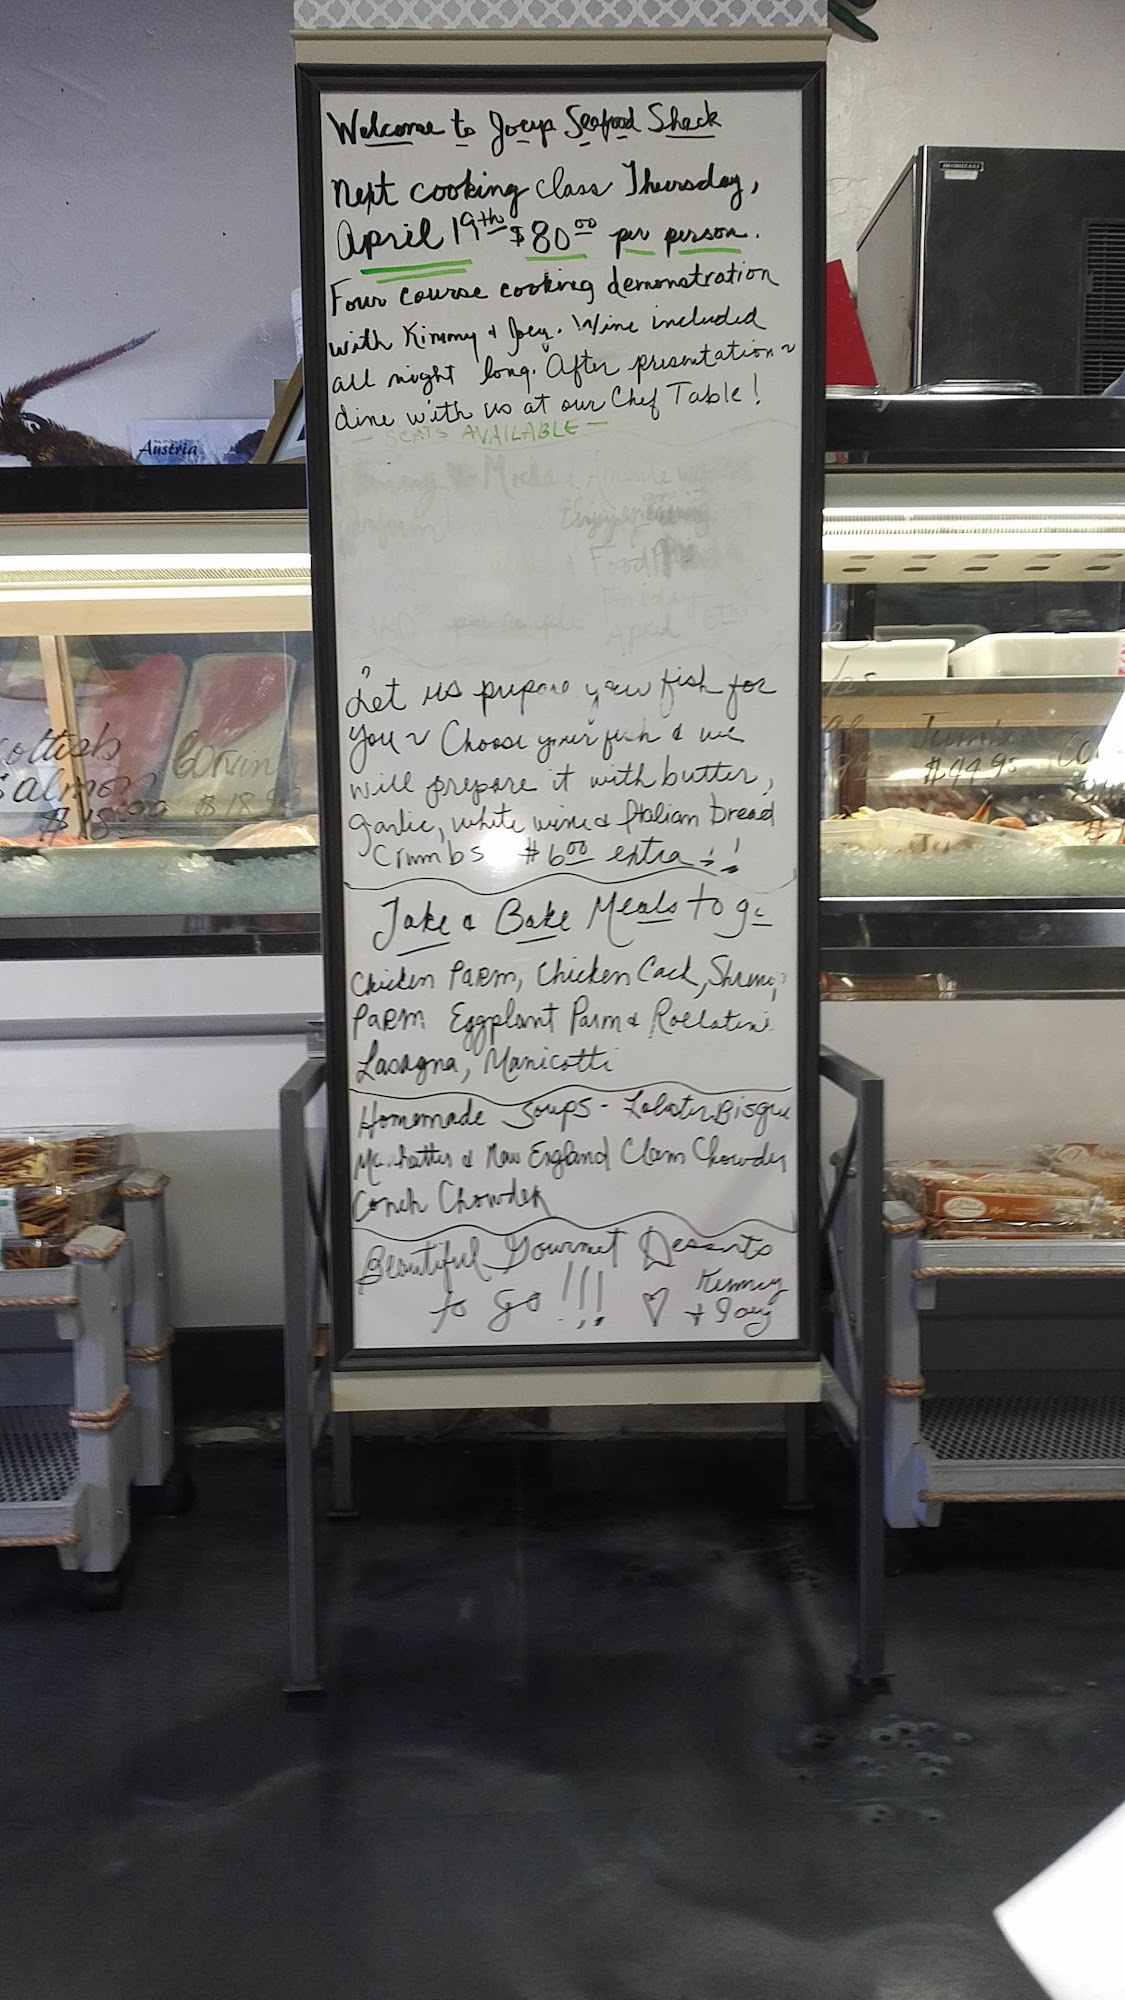 Welcome to Joeys Seafood Shack
Next cooking class Thursday,
April 19th $80.00 per person.
Four course cooking demonstration
with Kimmy & Joey. Wine included
all night long. After presentation~
dine with us at our Chef Table!
- SEATS AVAILABLE -
Enjoy an Evening
Food
Friday
April 6th
Let us prepare your fish for
you ~ Choose your fish & we
will prepare it with butter,
garlic, white wine & Italian bread
Crumbs $6.00 extra!!
Take & Bake Meals to go
Chicken Parm, Chicken Cack, Shrimp
Parm Eggplant Parm & Rollatini
Lasagna, Manicotti
Homemade Soups - Lobster Bisque
Manhatten & New England Clam Chowder
Conch Chowder
Beautiful Gourmet Desserts
to go !!! ♡ Kimmy
& Joey
Austria
Scottish
Salmon
Corvina
$18.99
Jumbo
$44.95